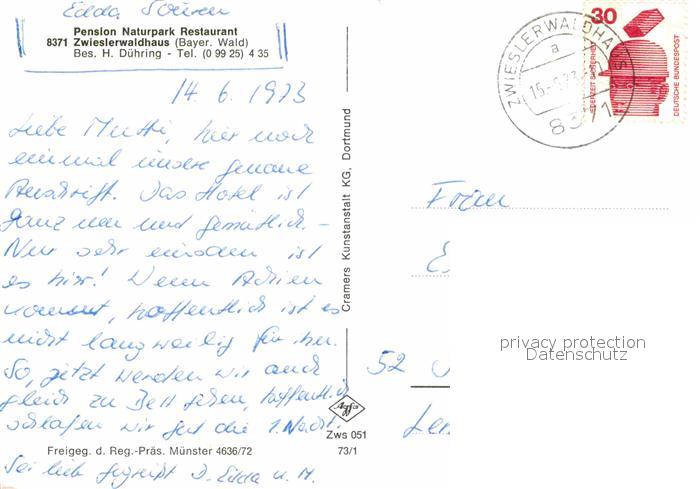 Edda Souren
Pension Naturpark Restaurant
8371 Zwieslerwaldhaus (Bayer. Wald)
Bes. H. Dühring - Tel. (0 99 25) 4 35
14. 6. 1973
Liebe Mutti, hier noch
einmal unsere genaue
Anschrift. Das Hotel ist
ganz neu und gemütlich. -
Nur sehr einsam ist
es hier! Wenn
kommt, hoffentlich ist es
nicht langweilig für ihn.
So, jetzt werden wir auch
gleich zu Bett gehen, hoffentlich
schlafen wir gut die 1. Nacht.
Freigeg. d. Reg.-Präs. Münster 4636/72
Sei lieb gegrüßt D. Edda u. M.
Cramers Kunstanstalt KG, Dortmund
Agfa
Zws 051
73/1
ZWIESLERWALDHAUS
a
15.-6.73
8371
30
JEDERZEIT SICHERHEIT
DEUTSCHE BUNDESPOST
Frau
52
privacy protection
Datenschutz